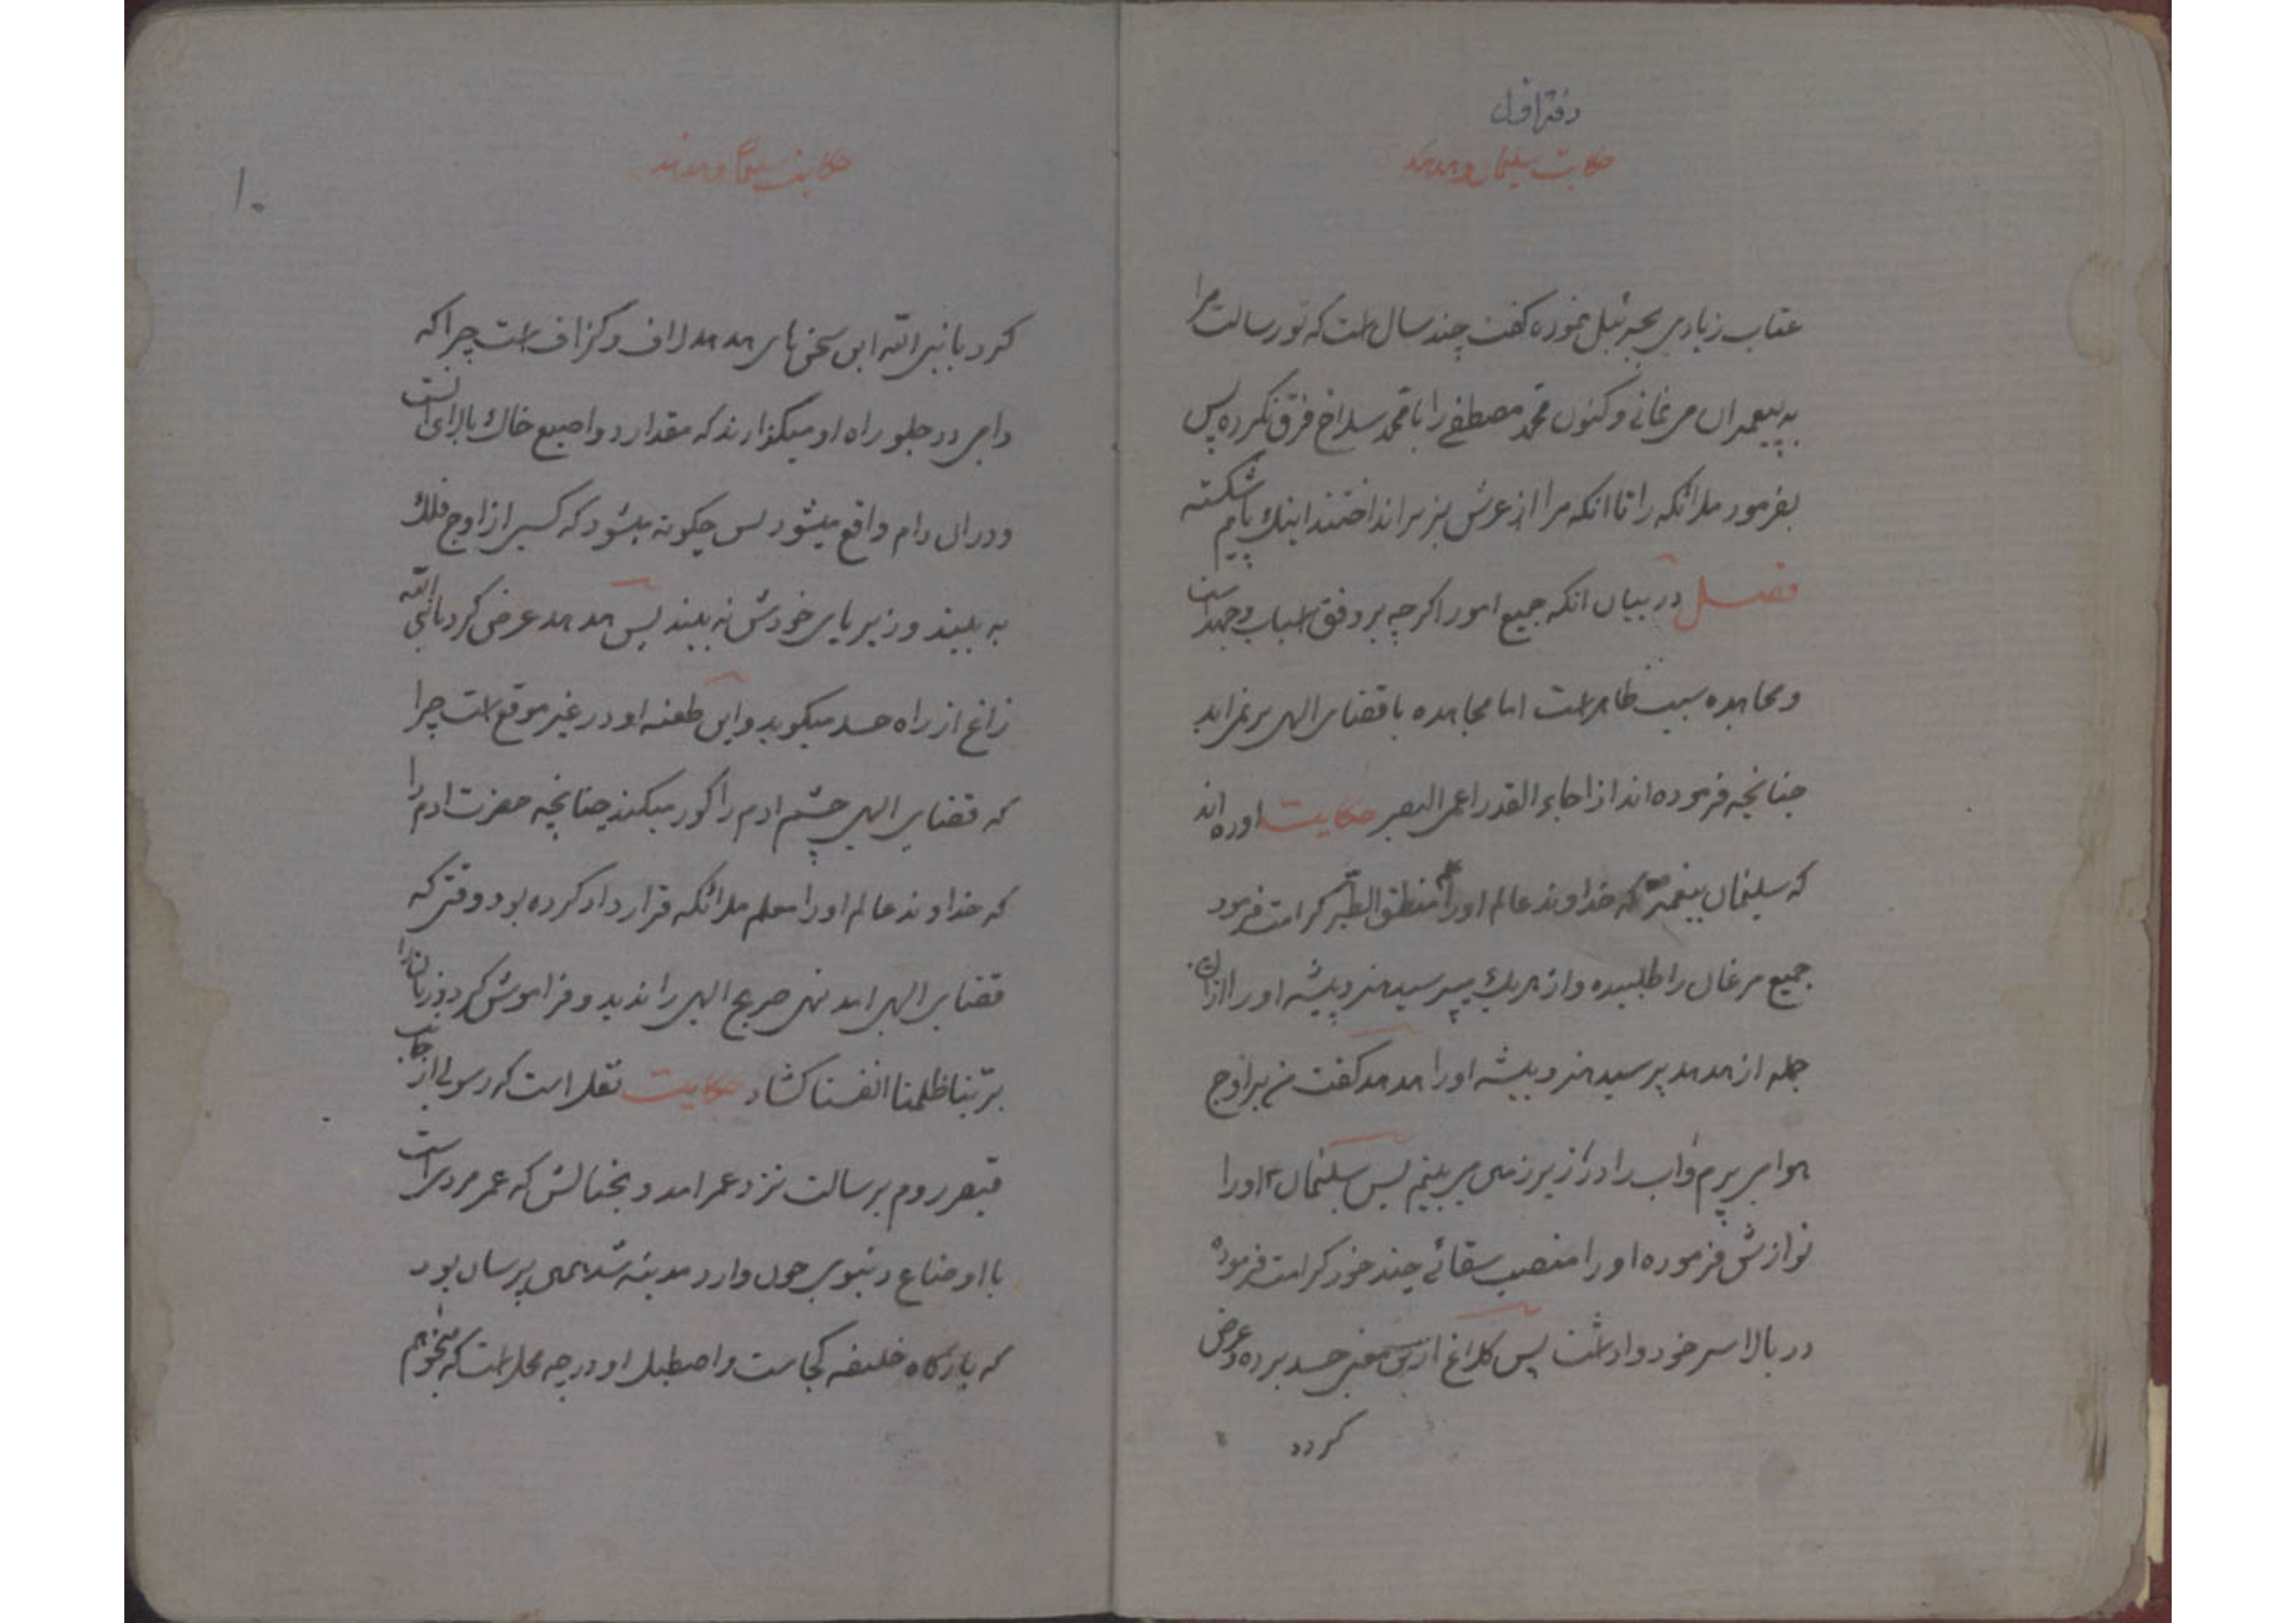 دفتر اول
حکایت سلیمان و هدهد
عتاب زیادی بجبرئیل نموده گفت چند سال است که تو رسالت مرا
به پیغمبران میرسانی و کنون محمد مصطفی را با محمد سلاخ فرق نکرده پس
بفرمود ملائکه را تا انکه مرا از عرش بزیر انداختند اینک پایم شکسته
فصل در بیان انکه جمیع امور اگرچه بر وفق اسباب و جهد است
و مجاهده سبب ظاهر است اما مجاهده با قضای الهی بر نمی اید
چنانچه فرموده اند اذا جاء القدر اعمی البصر حکایت اورده اند
که سلیمان پیغمبر که خداوند عالم او را منطق الطیر کرامت فرمود
جمیع مرغان را طلبیده و از هریک میپرسید هنر و پیشه او را از ان
جمله از هدهد پرسید هنر و پیشه او را هدهد گفت من بر اوج
هوا می پرم و اب را در زیر زمین می بینم پس سلیمان او را
نوازش فرموده او را منصب سقائی چند خود کرامت فرموده
در بالا سر خود واداشت پس کلاغ ازین معنی حسد برده و عرض
کرد
حکایت سلیمان و هدهد
۱۰
کرد یا نبی الله این سخن های هدهد لاف و گزاف است چرا که
دامی در جلو راه او میگذارند که مقدار دو اصبع خاک بالای انست
و در ان دام واقع میشود پس چگونه میشود که کسی از اوج فلک
به بیند و زیر پای خودش نه بیند پس هدهد عرض کرد یا نبی الله
زاغ از راه حسد میگوید و این طعنه او در غیر موقع است چرا
که قضای الهی چشم ادم را کور میکند چنانچه حضرت ادم را
که خداوند عالم او را معلم ملائکه قرارداد کرده بود وقتی که
قضای الهی امد نهی صریح الهی را ندید و فراموش کرد و زبان را
بربنا ظلمنا انفسنا گشاد حکایت نقل است که رسولی از جانب
قیصر روم برسالت نزد عمر امد و بخیالش که عمر مردی است
با اوضاع دنیوی چون وارد مدینه شد همی پرسان بود
که بارگاه خلیفه کجاست و اصطبل او در چه محل است که میخواهم